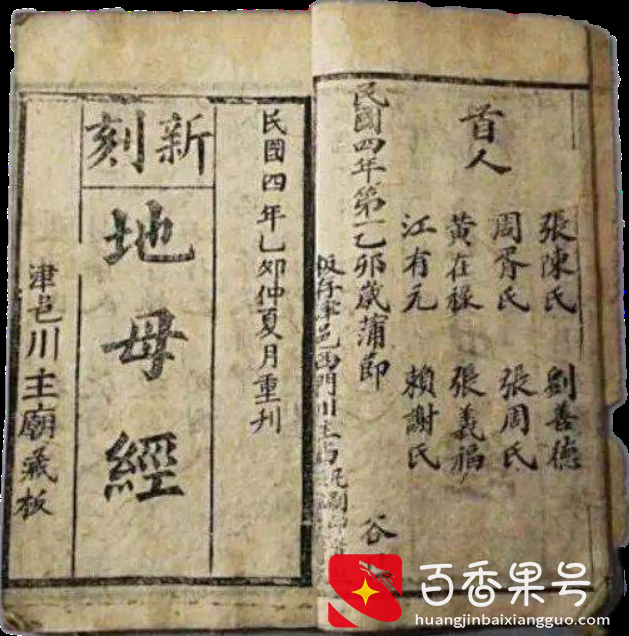 首人
張陳氏 劉善德
周胥氏 張周氏
黄在祿 張義福
江有元 賴謝氏
民國四年第一乙卯歲蒲節
板存津邑西門川主廟
谷
民國四年乙卯仲夏月重刋
新刻
地母經
津邑川主廟藏板
百香果号
huangjinbaixiangguo.com